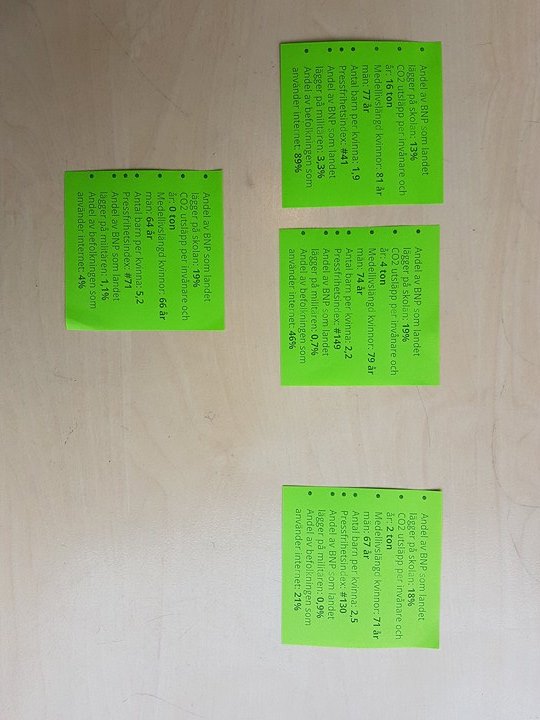 • Andel av BNP som landet
lägger på skolan: 13%
• CO2 utsläpp per invånare och
år: 16 ton
• Medellivslängd kvinnor: 81 år
män: 77 år
• Antal barn per kvinna: 1,9
• Pressfrihetsindex: #41
• Andel av BNP som landet
lägger på militären: 3,3%
• Andel av befolkningen som
använder internet: 89%
• Andel av BNP som landet
lägger på skolan: 19%
• CO2 utsläpp per invånare och
år: 4 ton
• Medellivslängd kvinnor: 79 år
män: 74 år
• Antal barn per kvinna: 2,2
• Pressfrihetsindex: #149
• Andel av BNP som landet
lägger på militären: 0,7%
• Andel av befolkningen som
använder internet: 46%
• Andel av BNP som landet
lägger på skolan: 18%
• CO2 utsläpp per invånare och
år: 2 ton
• Medellivslängd kvinnor: 71 år
män: 67 år
• Antal barn per kvinna: 2,5
• Pressfrihetsindex: #130
• Andel av BNP som landet
lägger på militären: 0,9%
• Andel av befolkningen som
använder internet: 21%
• Andel av BNP som landet
lägger på skolan: 19%
• CO2 utsläpp per invånare och
år: 0 ton
• Medellivslängd kvinnor: 66 år
män: 64 år
• Antal barn per kvinna: 5,2
• Pressfrihetsindex: #71
• Andel av BNP som landet
lägger på militären: 1,1%
• Andel av befolkningen som
använder internet: 4%